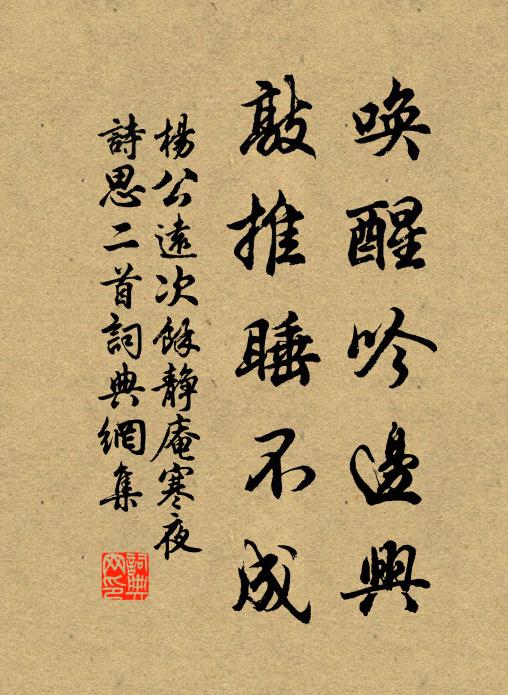 喚醒吟邊興
敲推睡不成
楊公遠次餘靜庵寒夜
詩思二首詞典網集
詞典网印